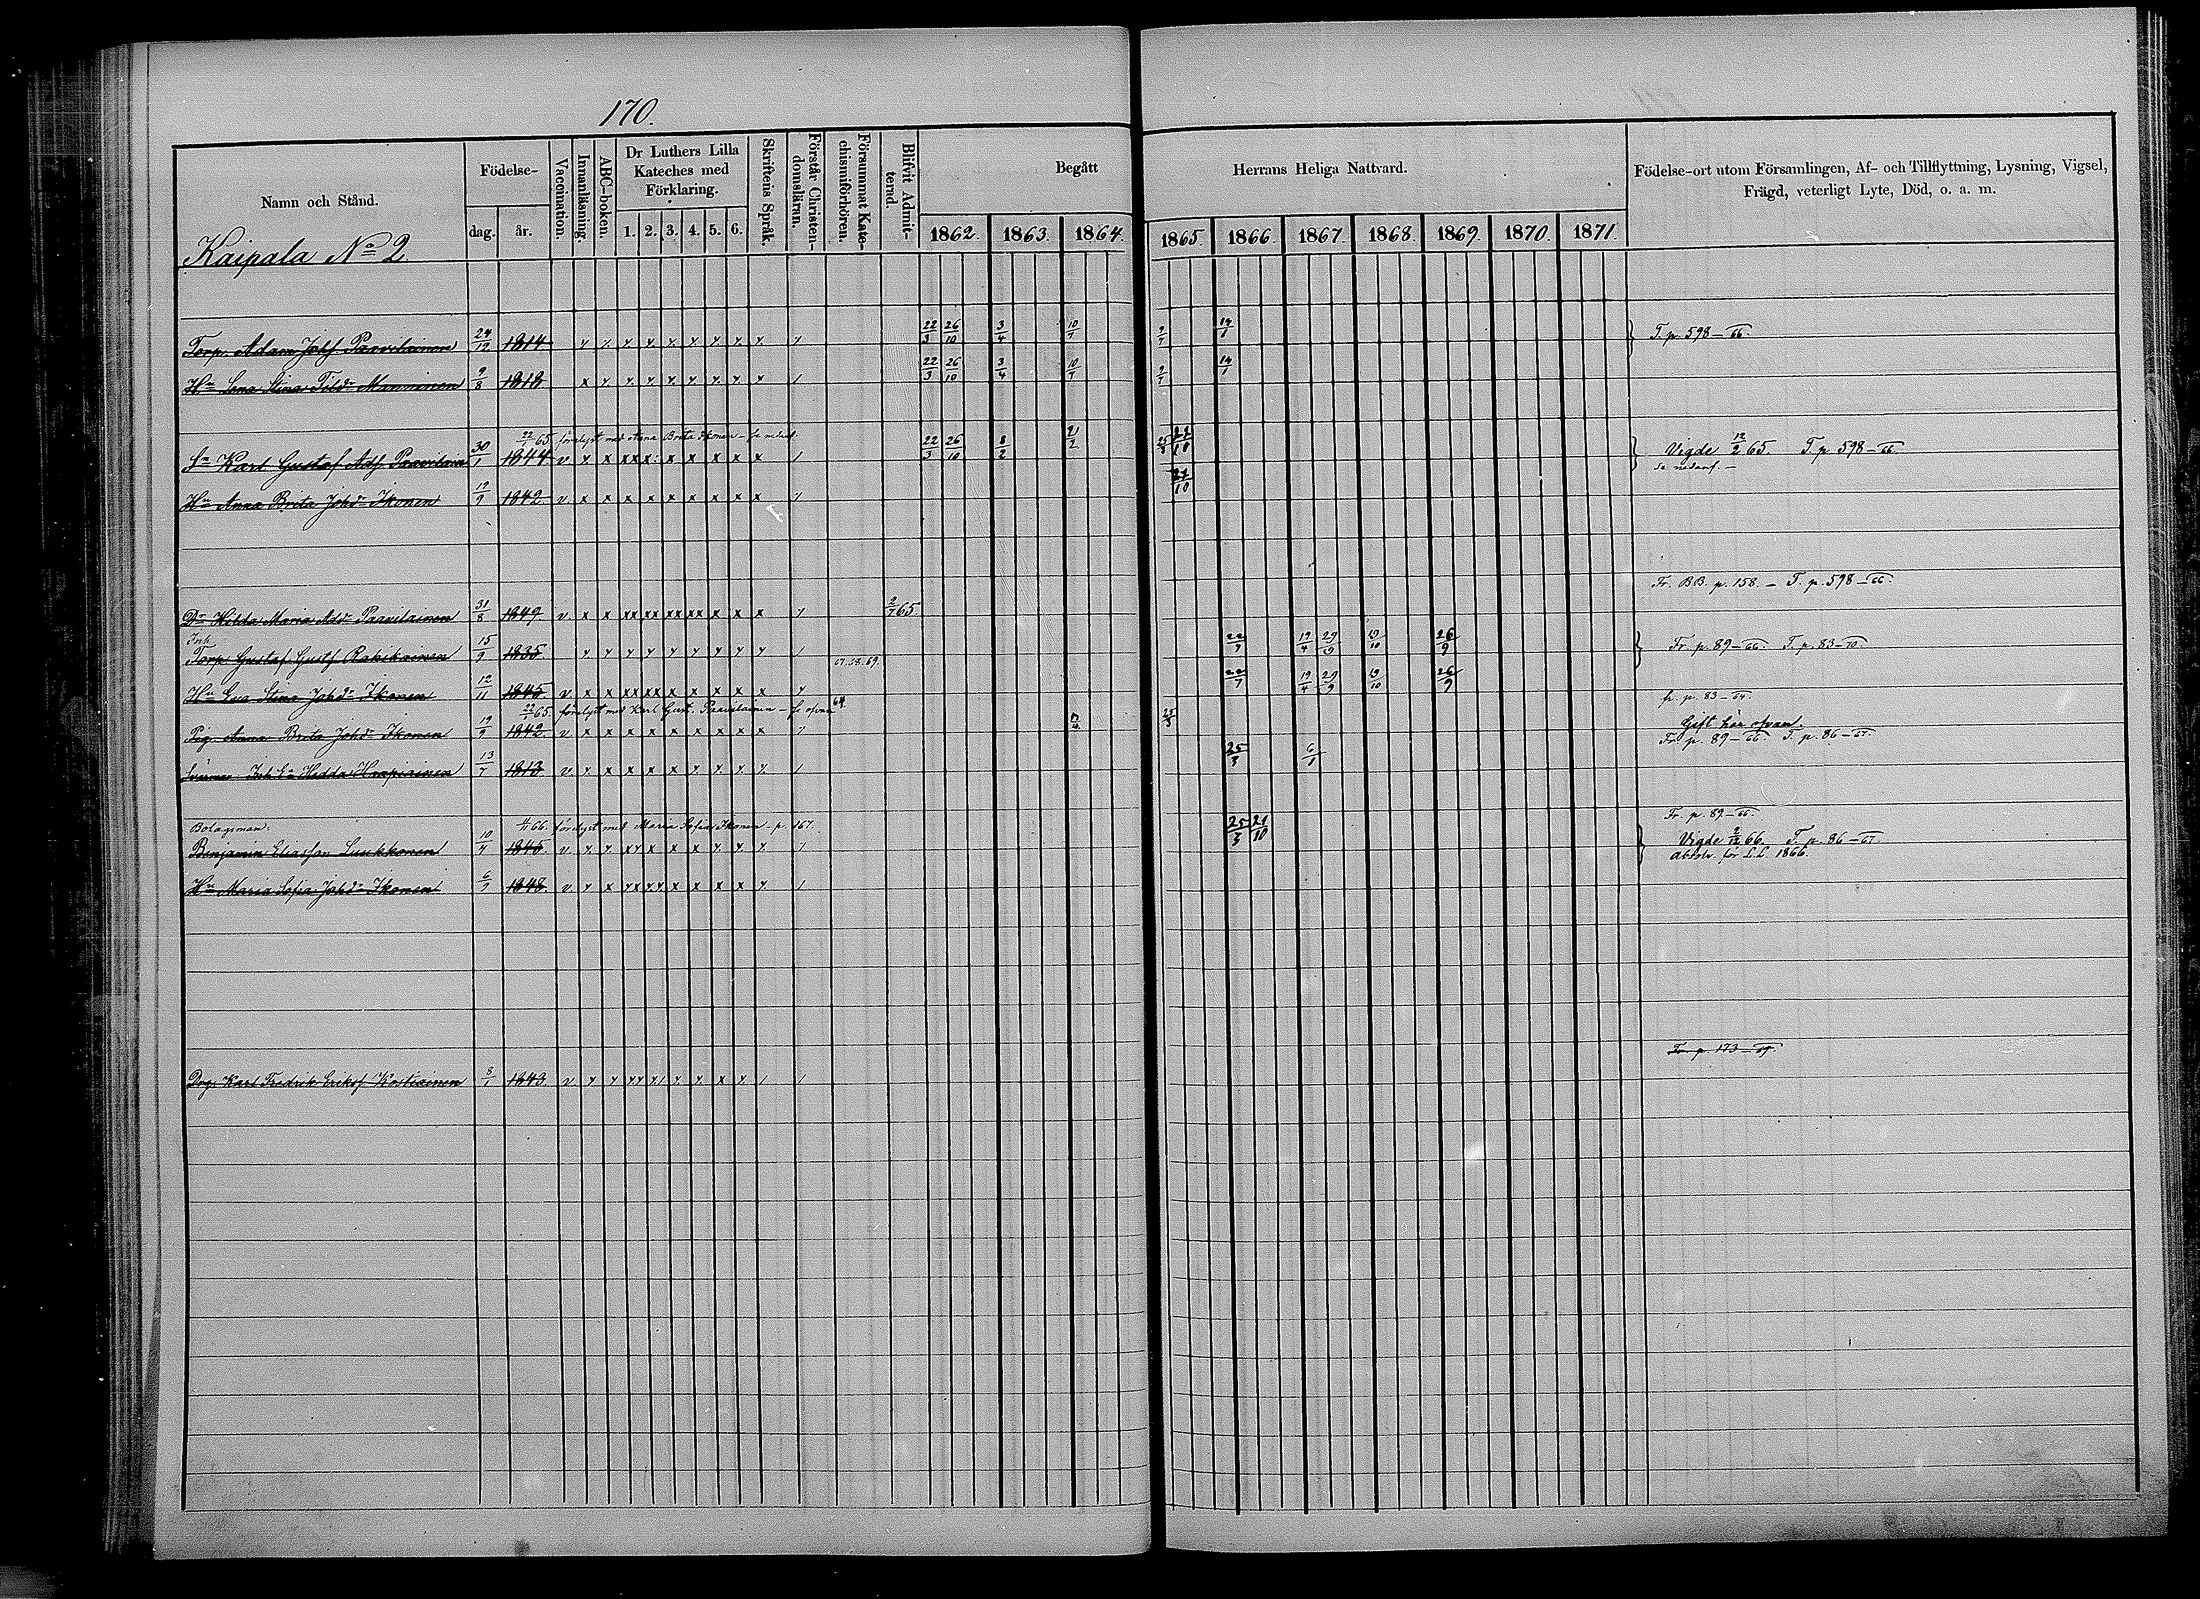 170.
Namn och Stånd.
Födelse-
dag.
år.
Vaccination.
Innanläsning.
ABC-boken.
Dr Luthers Lilla
Kateches med
Förklaring.
1. 2. 3. 4. 5. 6.
Skriftens Språk.
Förstår Christen-
domsläran.
Försummat Kate-
chismiförhören.
Blifvit Admit-
terad.
Begått
Herrans Heliga Nattvard.
1862. 1863. 1864. 1865 1866. 1867. 1868. 1869. 1870. 1871.
Födelse-ort utom Församlingen, Af- och Tillflyttning, Lysning, Vigsel,
Frägd, veterligt Lyte, Död, o. a. m.
Kaipala No 2.
Torp. Adam Johsf. Paavilainen 24/12 1814 22/3 26/10 3/4 10/7 9/7 14/1 T. p. 598-66.
Hu Lena Stina Minninen 9/8 1818 22/3 26/10 3/4 10/7 9/7 14/1
22/1 65 förelyst med Anna Brita Ikonen - se nedanf.
Sn Karl Gustaf Adf. Paavilain 30/1 1844 v 22/3 26/10 8/2 21/2 Vigde 12/2 65. T. p. 598-66.
se nedanf.
Hu Anna Brita Johdr Ikonen 19/9 1842 v
Fr. BB. p. 158. - T. p. 598-66.
Dr Hilda Maria Addr Paavilainen 31/8 1849. v 2/7 65
Inh.
Torp. Gustaf Gustf. Rahikainen 15/9 1835 67. 68. 69. 22/7 19/4 29/9 19/10 26/9 Fr. p. 89-66. T. p. 83-70.
Hu Eva Stina Johdr Ikonen 12/11 1845 v 22/7 19/4 29/9 19/10 26/9
fr. p. 83-64.
22/1 65. förelyst med Karl Gust. Paavilainen - se ofvan 64
Pig. Anna Brita Johdr Ikonen 19/9 1842 v 25/3 Gift här ofvan.
Fr. p. 89-66. T. p. 86-67.
Inh. Hedda 13/7 1813 v 25/3 6/1
Fr. p. 89-66.
Bolagsman:
66. förelyst med Maria Sofia Ikonen - p. 167.
Benjamin Eliasson Luukkonen 10/4 1845. v 25/3 21/10 Vigde 2/12 66. T. p. 86-67.
absolv. för L.L. 1866.
Hu Maria Sofia Johdr Ikonen 6/9 1848. v
Fr. p. 173-69.
Drg. Karl Fredrik Eriksf. Kostiainen 8/1 1843. v